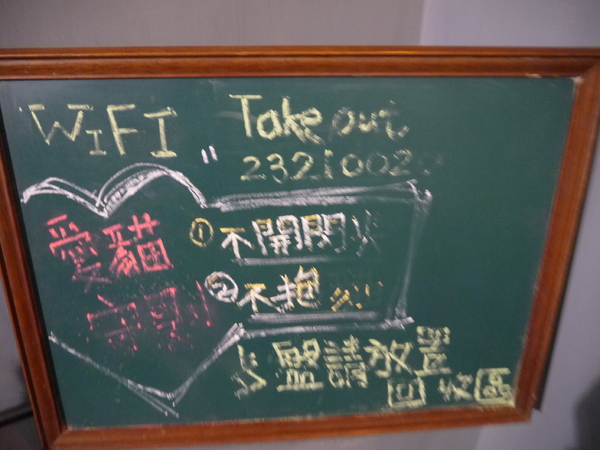 WIFI
Take out
23210020
愛貓
守則
①不開閃
②不抱
盤請放置
回收區